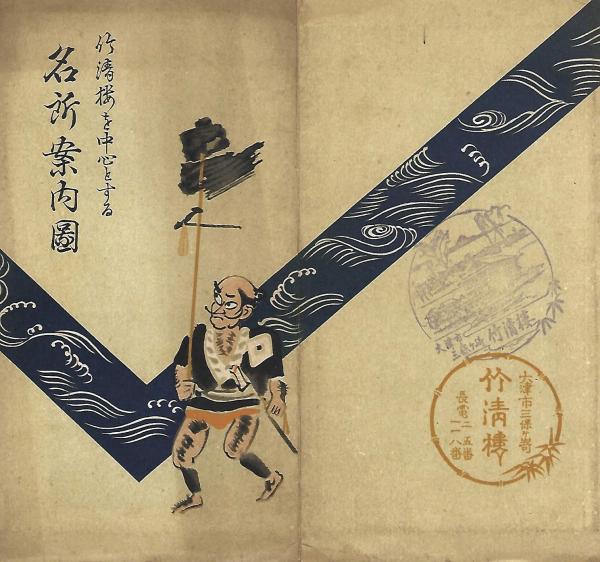 竹清楼を中心とする
名所案内圖
大津市三保ヶ崎
竹清樓
竹清樓
大津市三保ヶ崎
長電二五番
一一八番